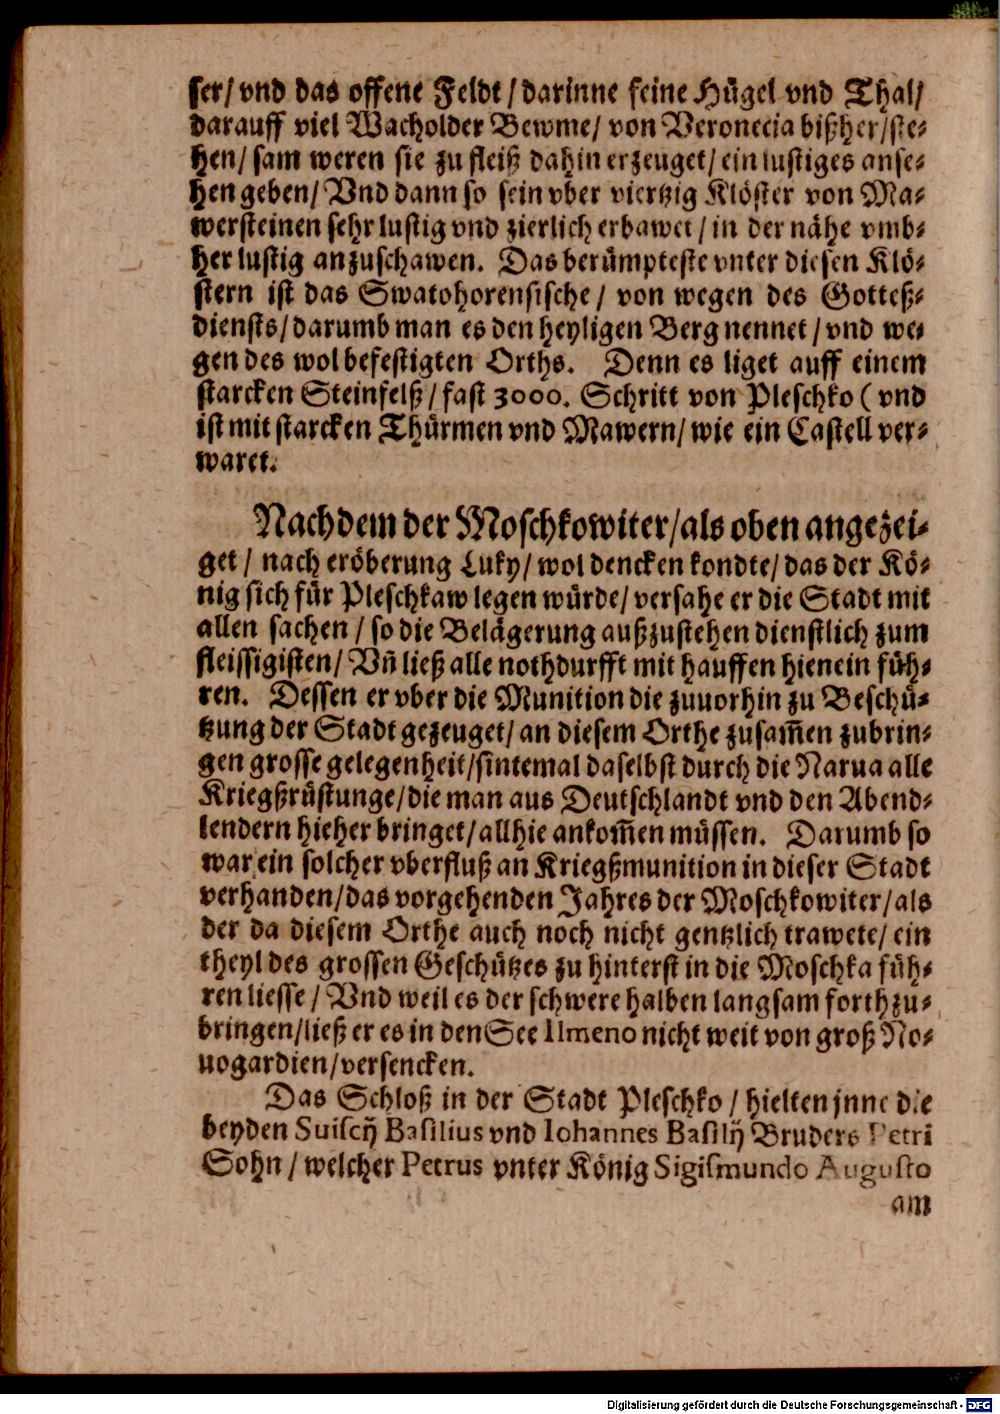 ser/ vnd das offene Feldt / darinne feine Hügel vnd Thal/
darauff viel Wacholder Bewme/ von Veronecia bißher/ ste-
hen/ sam weren sie zu fleiß dahin erzeuget/ ein lustiges anse-
hen geben/ Vnd dann so sein vber viertzig Klöster von Ma-
wersteinen sehr lustig vnd zierlich erbawet / in der nähe vmb-
her lustig anzuschawen. Das berümpteste vnter diesen Klö-
stern ist das Swatohorensische / von wegen des Gotteß-
diensts/ darumb man es den heyligen Berg nennet / vnd we-
gen des wol befestigten Orths. Denn es liget auff einem
starcken Steinfelß / fast 3000. Schritt von Pleschko ( vnd
ist mit starcken Thürmen vnd Mawern/ wie ein Castell ver-
waret.
Nachdem der Moschkowiter/als oben angezei-
get / nach eröberung Luky/ wol dencken kondte/ das der Kö-
nig sich für Pleschkaw legen würde/ versahe er die Stadt mit
allen sachen / so die Belägerung außzustehen dienstlich zum
fleissigisten/ Vñ ließ alle nothdurfft mit hauffen hienein füh-
ren. Dessen er vber die Munition die zuuorhin zu Beschü-
tzung der Stadt gezeuget/ an diesem Orthe zusam̃en zubrin-
gen grosse gelegenheit/sintemal daselbst durch die Narua alle
Kriegßrüstunge/die man aus Deutschlandt vnd den Abend-
lendern hieher bringet/allhie ankom̃en müssen. Darumb so
war ein solcher vberfluß an Kriegßmunition in dieser Stadt
verhanden/das vorgehenden Jahres der Moschkowiter/als
der da diesem Orthe auch noch nicht gentzlich trawete/ ein
theyl des grossen Geschützes zu hinterst in die Moschka füh-
ren liesse / Vnd weil es der schwere halben langsam forth zu-
bringen/ließ er es in den See Ilmeno nicht weit von groß No-
uogardien/versencken.
Das Schloß in der Stadt Pleschko / hielten jnne die
beyden Suiscÿ Basilius vnd Iohannes Basilÿ Bruders Petri
Sohn / welcher Petrus vnter König Sigismundo Augusto
am
Digitalisierung gefördert durch die Deutsche Forschungsgemeinschaft - DFG